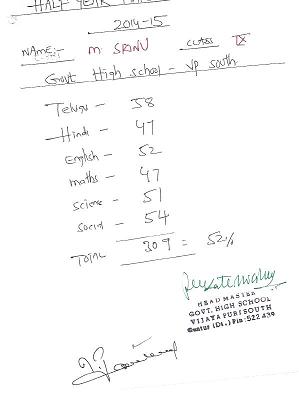 HALF YEAR
2014-15
NAME:- M SRINU CLASS IX
Govt High school - VP south
Telugu - 58
Hindi - 47
English - 52
maths - 47
science - 51
social - 54
TOTAL 309 = 52%
HEAD MASTER
GOVT. HIGH SCHOOL
VIJAYA PURI SOUTH
Guntur (Dt.) Pin: 522 439